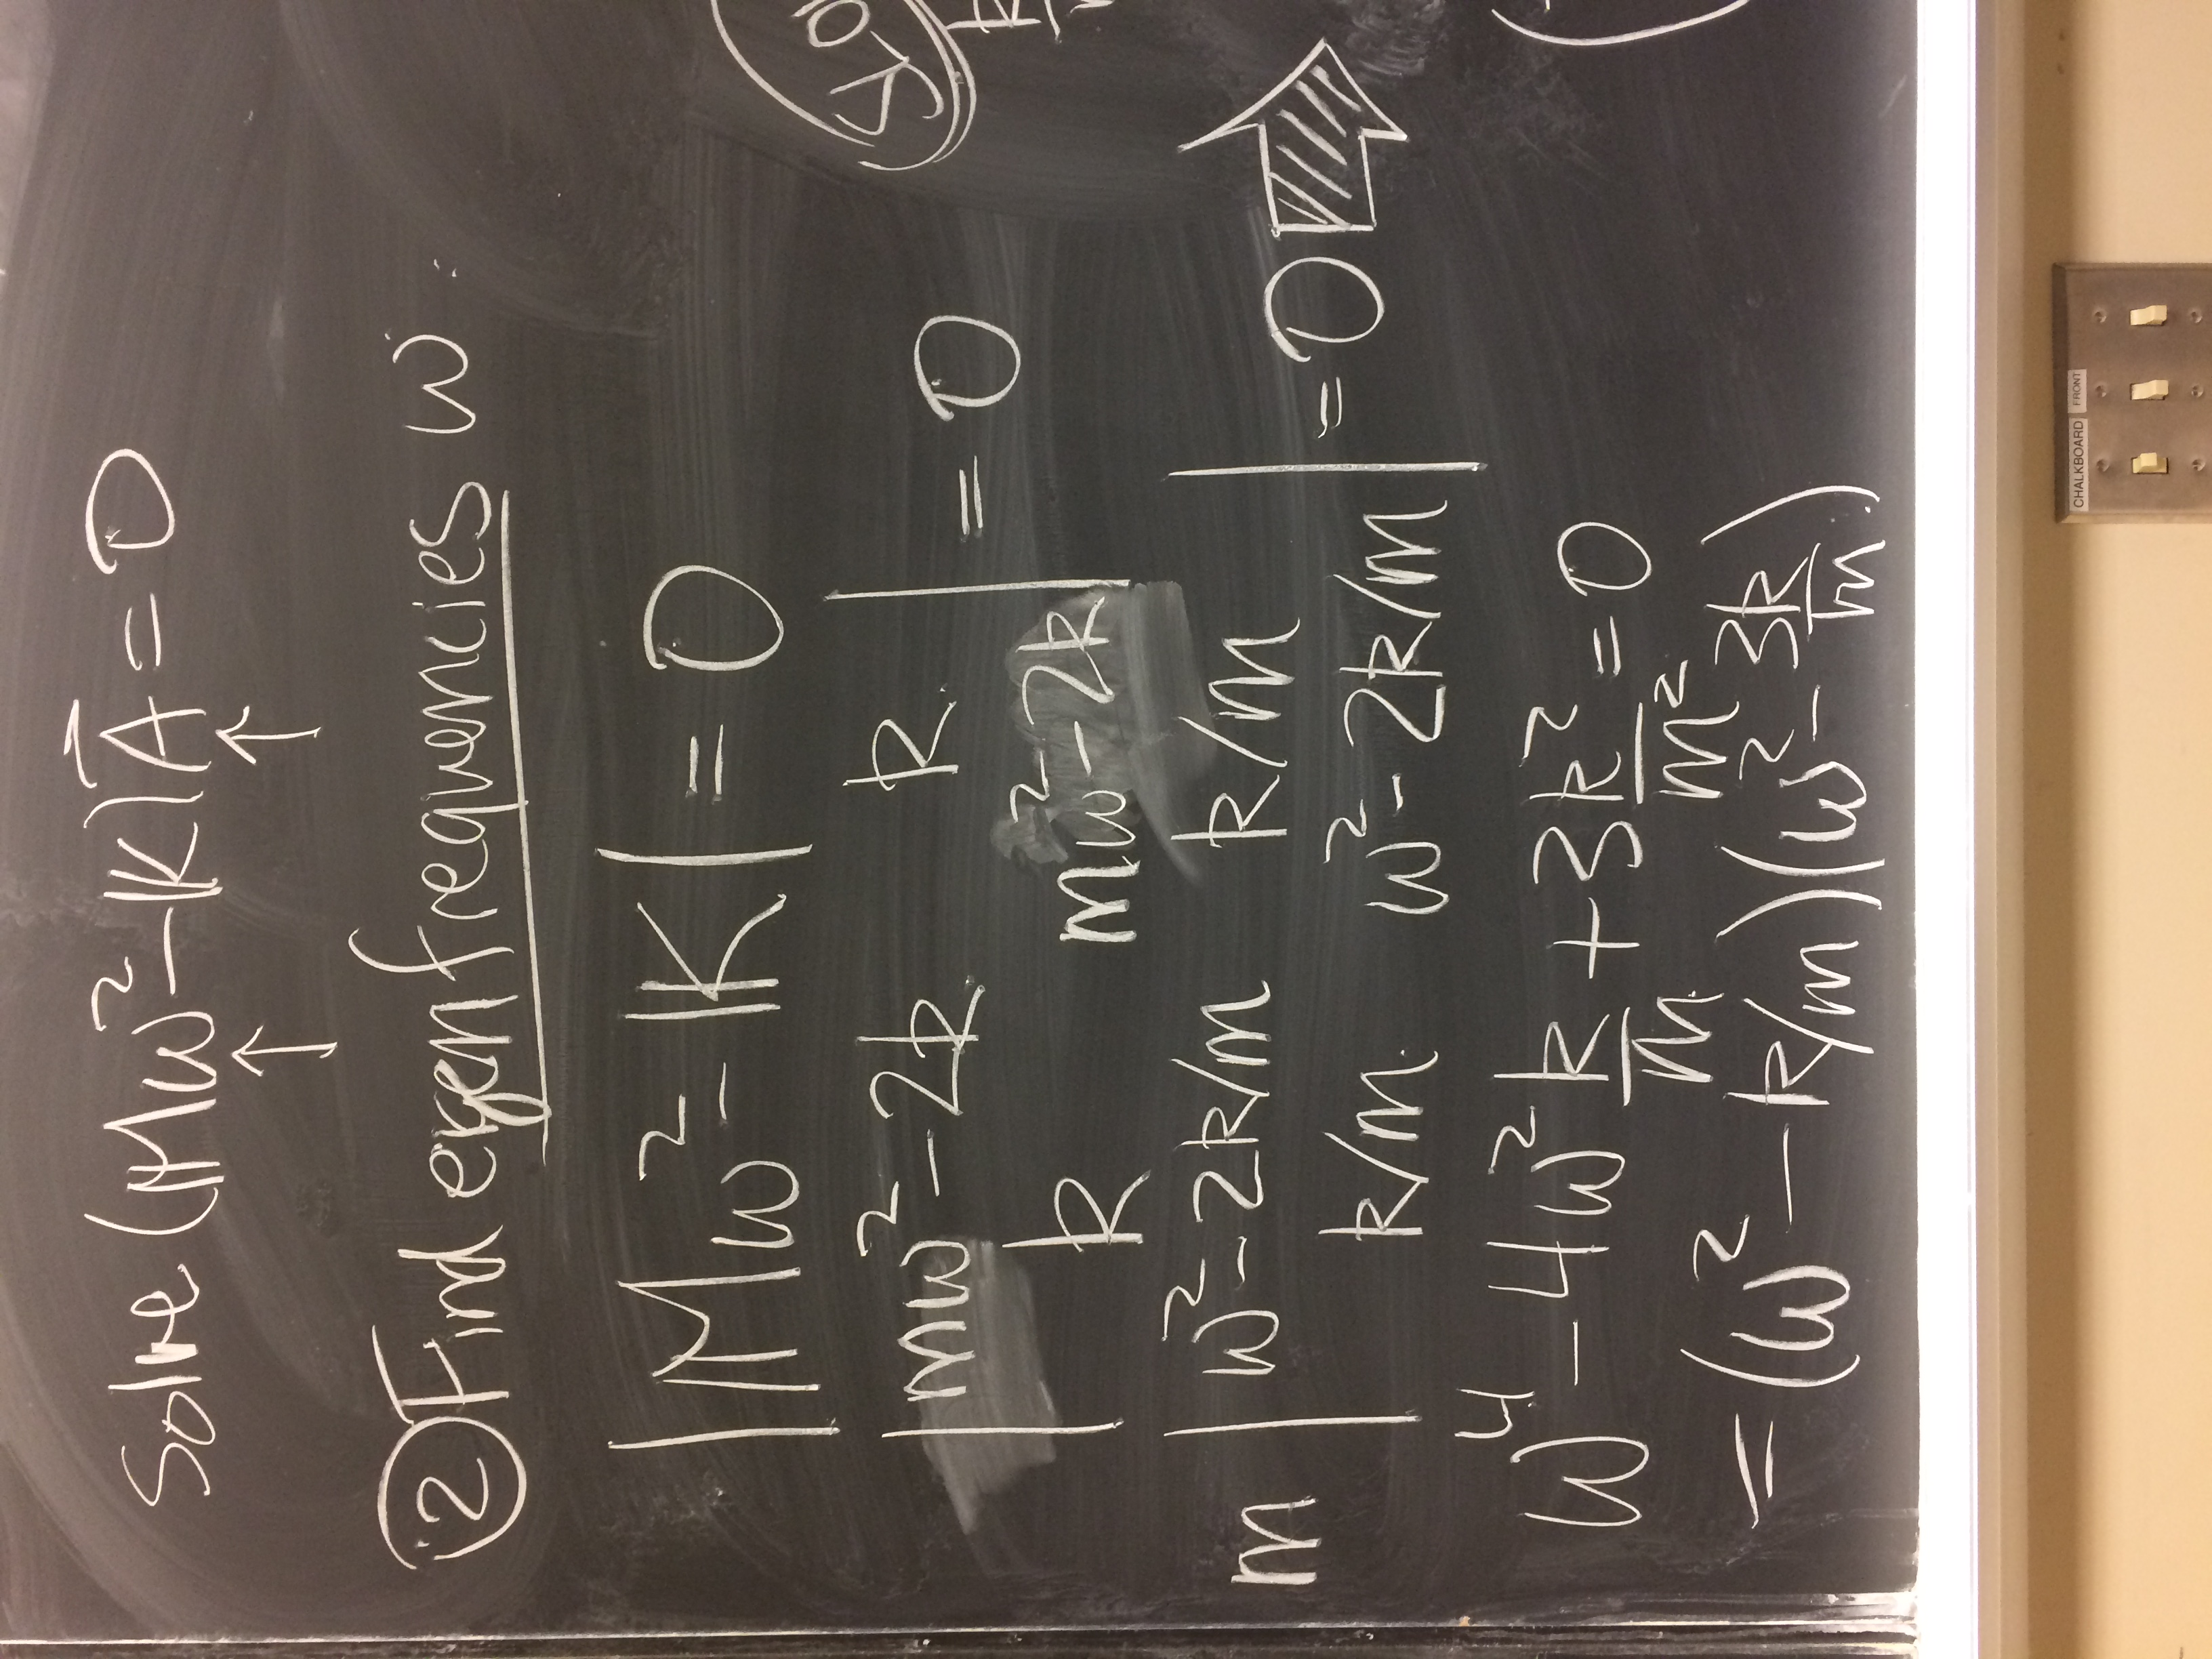 Solve (Mω² - K)A⃗ = 0
↑ ↑
② Find eigenfrequencies ω:
|Mω² - K| = 0
|mω² - 2k k| = 0
|k mω² - 2k|
m |ω² - 2k/m k/m| = 0
|k/m ω² - 2k/m|
ω⁴ - 4ω² k/m + 3k²/m² = 0
= (ω² - k/m)(ω² - 3k/m)
CHALKBOARD FRONT